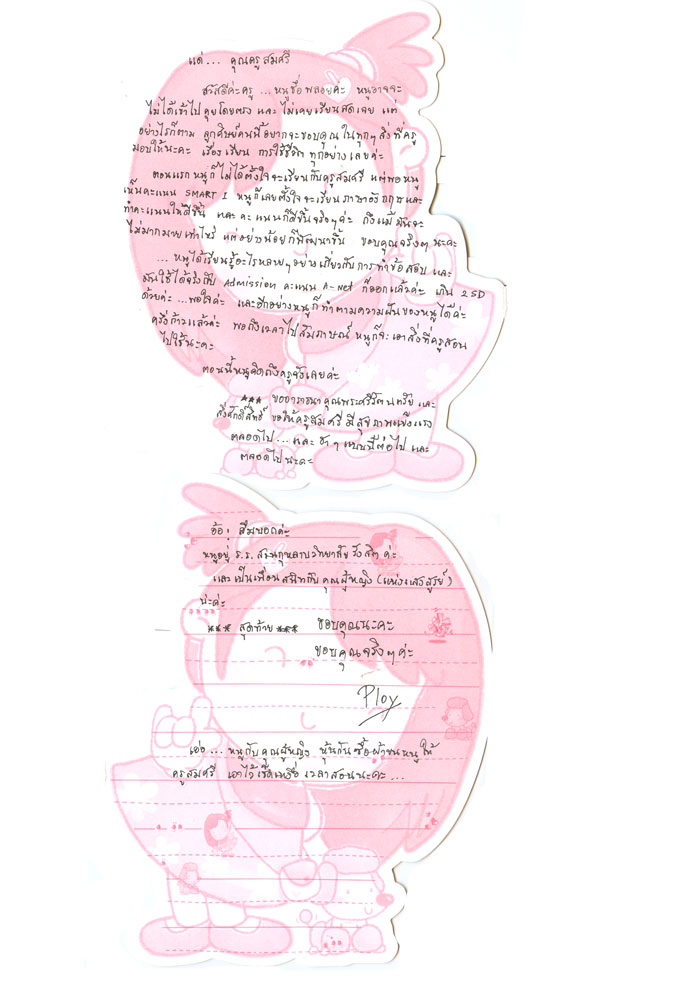 แด่... คุณครูสมศรี
สวัสดีค่ะครู ...หนูชื่อพลอยค่ะ หนูอาจจะ
ไม่ได้เข้าไปคุยโดยตรง และ ไม่เคยเรียนสดเลย แต่
อย่างไรก็ตาม ลูกศิษย์คนนี้อยากจะขอบคุณในทุกๆ สิ่งที่ครู
มอบให้นะคะ เรื่องเรียน การใช้ชีวิต ทุกอย่างเลยค่ะ
ตอนแรกหนูก็ไม่ได้ตั้งใจจะเรียนกับครูสมศรี แต่พอหนู
เห็นคะแนน SMART I หนูก็เลยตั้งใจจะเรียนภาษาอังกฤษและ
ทำคะแนนให้ดีขึ้น และ คะแนนก็ดีขึ้นจริงๆค่ะ ถึงแม้มันจะ
ไม่มากมายเท่าไหร่ แต่อย่างน้อยก็พัฒนาขึ้น ขอบคุณจริงๆ นะคะ
... หนูได้เรียนรู้อะไรหลายๆอย่างเกี่ยวกับการทำข้อสอบ และ
มันใช้ได้จริงกับ Admission คะแนน A-Net ก็ออกแล้วค่ะ เกิน 2 SD
ด้วยค่ะ ...พอใจค่ะ และอีกอย่างหนูก็ทำตามความฝันของหนูได้ค่ะ
ครึ่งก้าวแล้วค่ะ พอถึงเวลาไปสัมภาษณ์ หนูก็จะเอาสิ่งที่ครูสอน
ไปใช้นะคะ
ตอนนี้หนูคิดถึงครูจังเลยค่ะ
*** ขออาราธนาคุณพระศรีรัตนตรัย และ
สิ่งศักดิ์สิทธิ์ ขอให้ครูสมศรี มีสุขภาพแข็งแรง
ตลอดไป ...และ ขำๆ แบบนี้ต่อไป และ
ตลอดไปนะคะ
อ้อ! ลืมบอกค่ะ
หนูอยู่ ร.ร. สวนกุหลาบวิทยาลัย รังสิต ค่ะ
และเป็นเพื่อนสนิทกับ คุณผู้หญิง (แห่งเศรสูรย์)
น่ะค่ะ
*** สุดท้าย *** ขอบคุณนะคะ
ขอบคุณจริงๆค่ะ
Ploy
เอ่อ ... หนูกับคุณผู้หญิง หุ้นกันซื้อผ้าขนหนูให้
ครูสมศรี เอาไว้เช็ดเหงื่อ เวลาสอนนะคะ ...